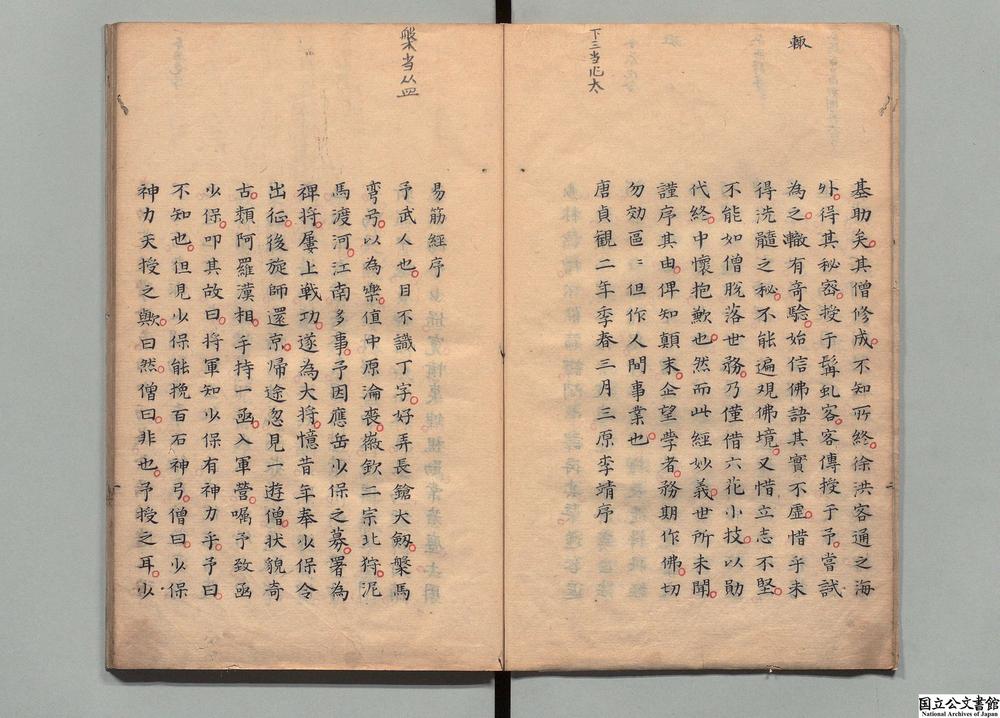 輙
下三当心太
基助矣其僧修成不知所終徐洪客遇之海
外得其秘密授于髯虬客客傳授于予嘗試
為之轍有奇驗始信佛語其實不虛惜乎未
得洗髓之秘不能遍观佛境又惜立志不堅
不能如僧脫落世務乃僅借六花小技以勛
代終中懷抱歉也然而此經妙義世所未聞
謹序其由俾知顛末企望學者務期作佛切
勿効區〻但作人間事業也
唐貞観二年季春三月三原李靖序
槃当从皿
易筋經序
予武人也目不識丁字好弄長鎗大劔槃馬
彎弓以為樂值中原淪喪徽欽二宗北狩泥
馬渡河江南多事予因應岳少保之募署為
裨將屢上戦功遂為大将憶昔年奉少保令
出征後旋師還京帰途忽見一遊僧状貌奇
古類阿羅漢相手持一函入軍營嘱予致函
少保叩其故曰將軍知少保有神力乎予曰
不知也但見少保能挽百石神弓僧曰少保
神力天授之歟曰然僧曰非也予授之耳少
国立公文書館
National Archives of Japan